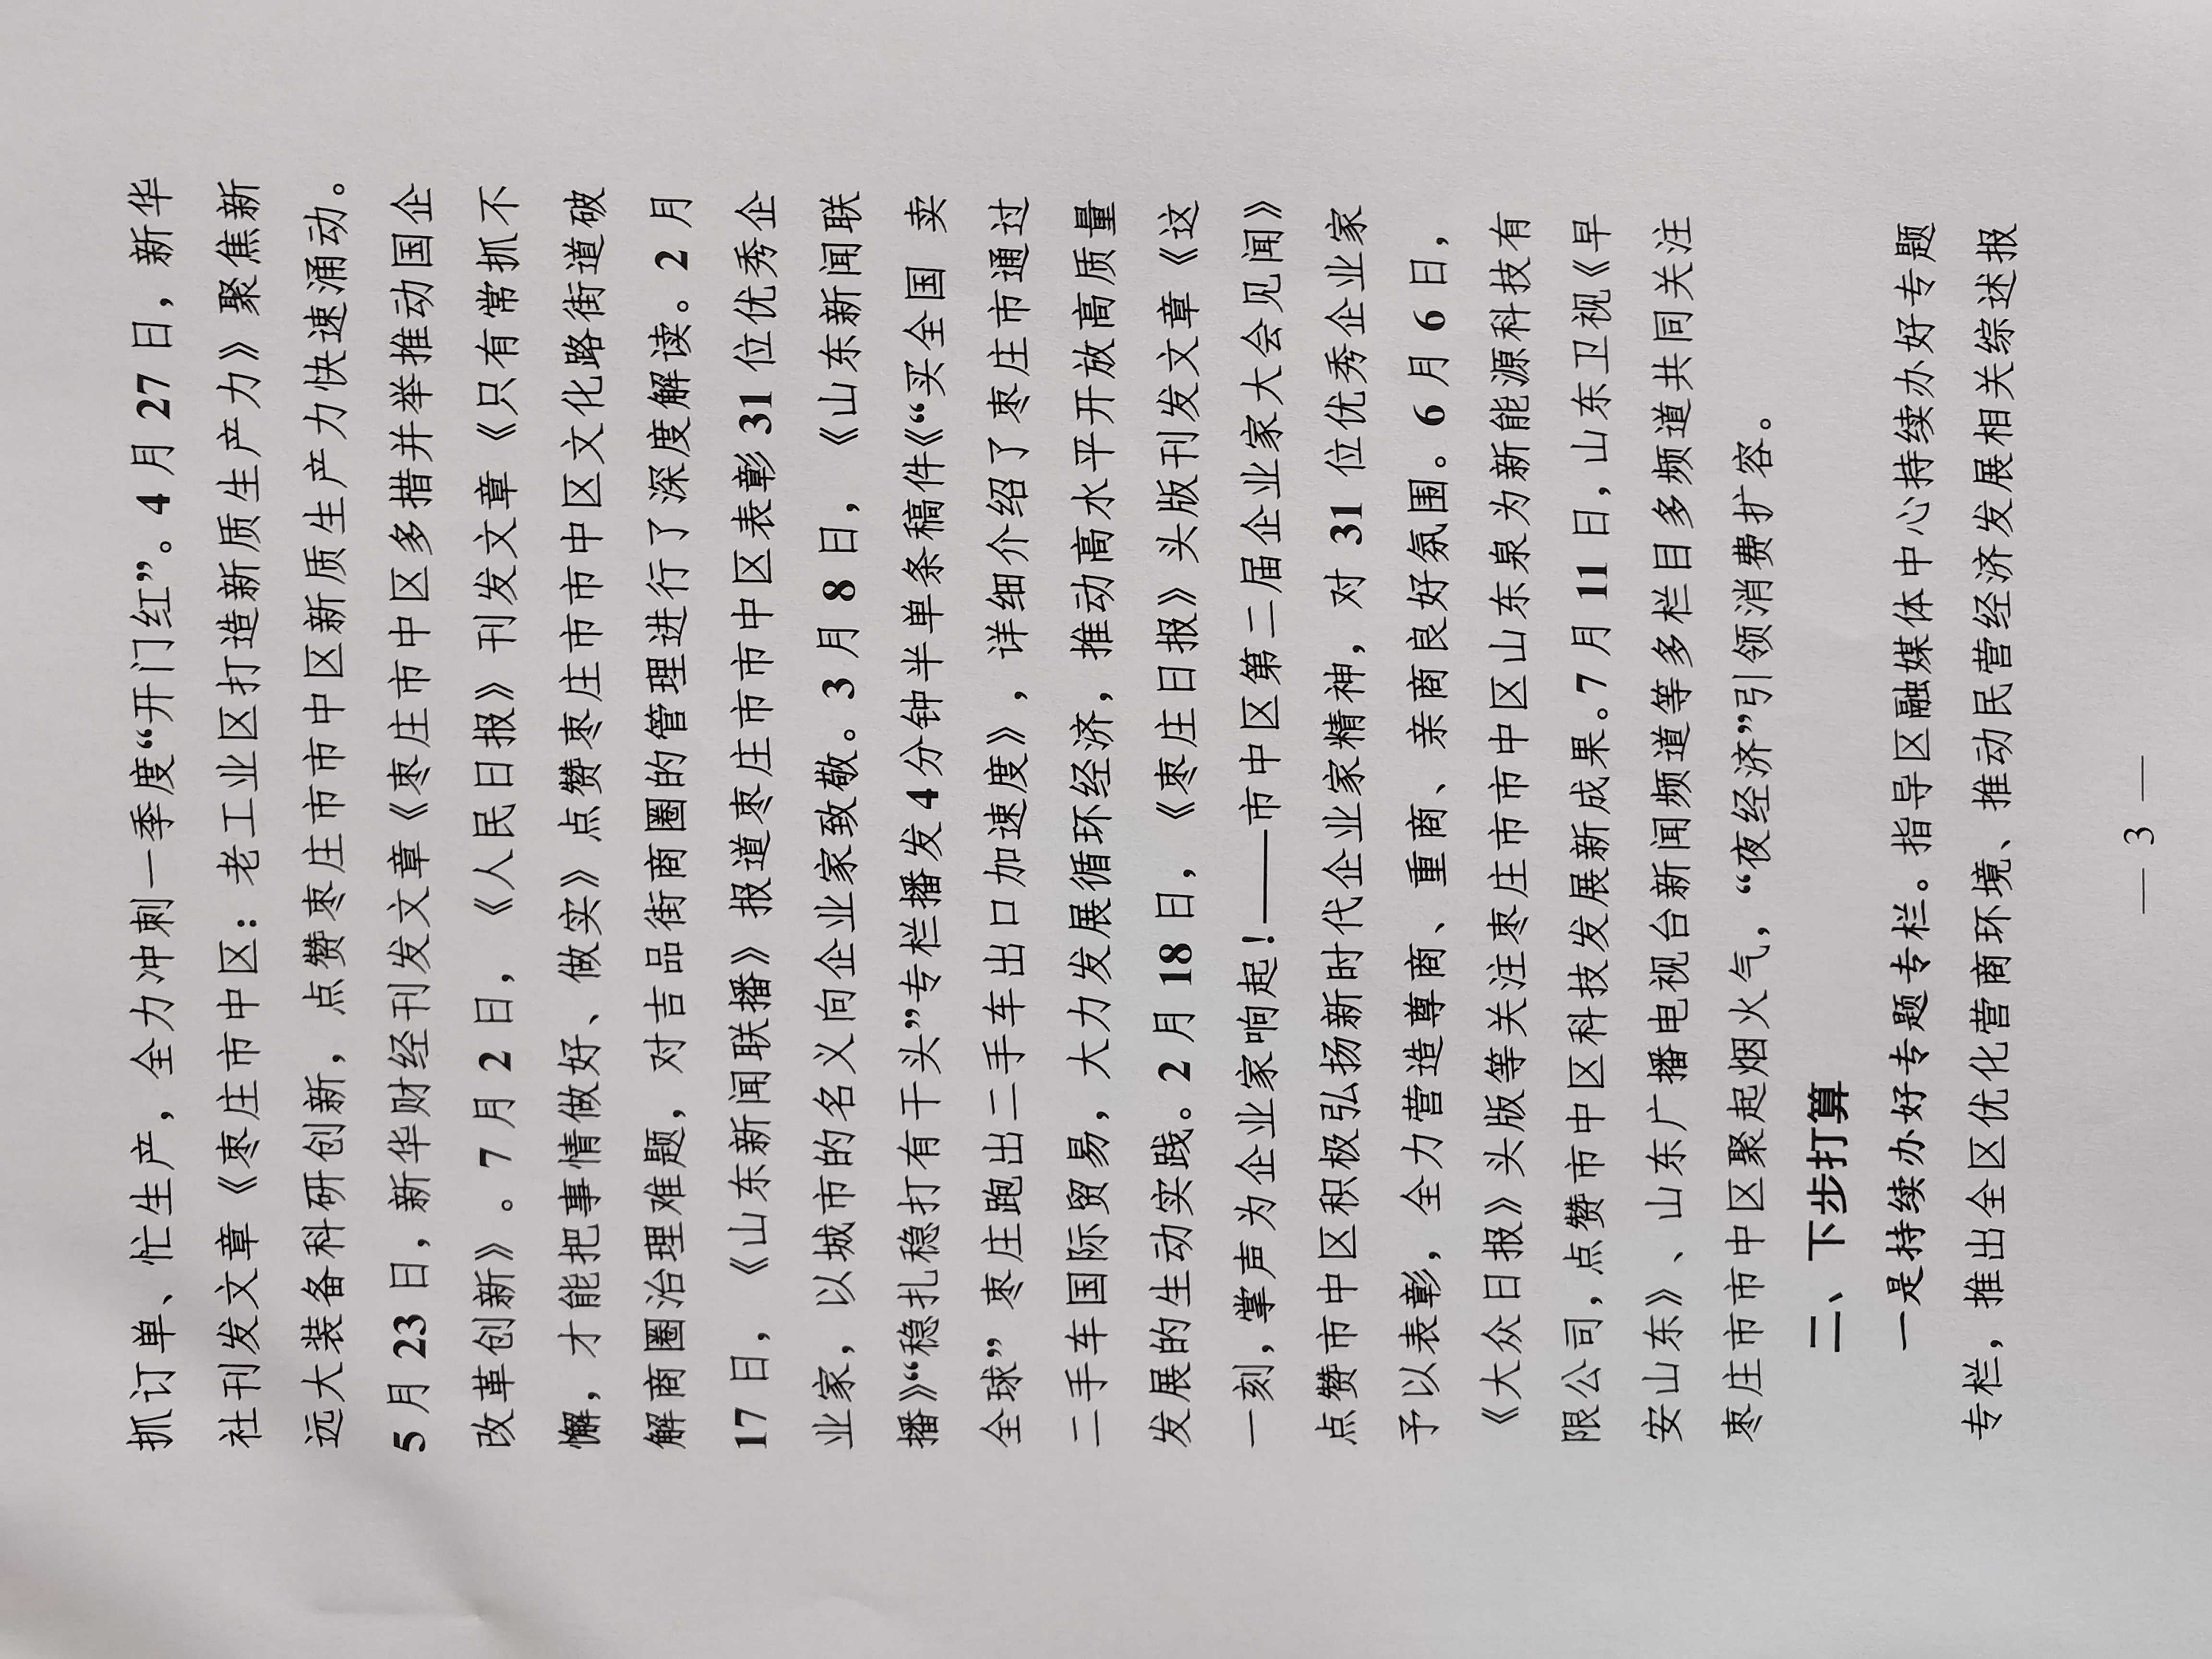 抓订单、忙生产，全力冲刺一季度“开门红”。4 月 27 日，新华
社刊发文章《枣庄市市中区：老工业区打造新质生产力》聚焦新
远大装备科研创新，点赞枣庄市市中区新质生产力快速涌动。
5 月 23 日，新华财经刊发文章《枣庄市市中区多措并举推动国企
改革创新》。7 月 2 日，《人民日报》刊发文章《只有常抓不
懈，才能把事情做好、做实》点赞枣庄市市中区文化路街道破
解商圈治理难题，对吉品街商圈的管理进行了深度解读。2 月
17 日，《山东新闻联播》报道枣庄市市中区表彰 31 位优秀企
业家，以城市的名义向企业家致敬。3 月 8 日，《山东新闻联
播》“稳扎稳打有干头”专栏播发 4 分钟半单条稿件《“买全国 卖
全球” 枣庄跑出二手车出口加速度》，详细介绍了枣庄市通过
二手车国际贸易，大力发展循环经济，推动高水平开放高质量
发展的生动实践。2 月 18 日，《枣庄日报》头版刊发文章《这
一刻，掌声为企业家响起！——市中区第二届企业家大会见闻》
点赞市中区积极弘扬新时代企业家精神，对 31 位优秀企业家
予以表彰，全力营造尊商、重商、亲商良好氛围。6 月 6 日，
《大众日报》头版等关注枣庄市市中区山东泉为新能源科技有
限公司，点赞市中区科技发展新成果。7 月 11 日，山东卫视《早
安山东》、山东广播电视台新闻频道等多栏目多频道共同关注
枣庄市市中区聚起烟火气，“夜经济”引领消费扩容。
二、下步打算
一是持续办好专题专栏。指导区融媒体中心持续办好专题
专栏，推出全区优化营商环境、推动民营经济发展相关综述报
— 3 —